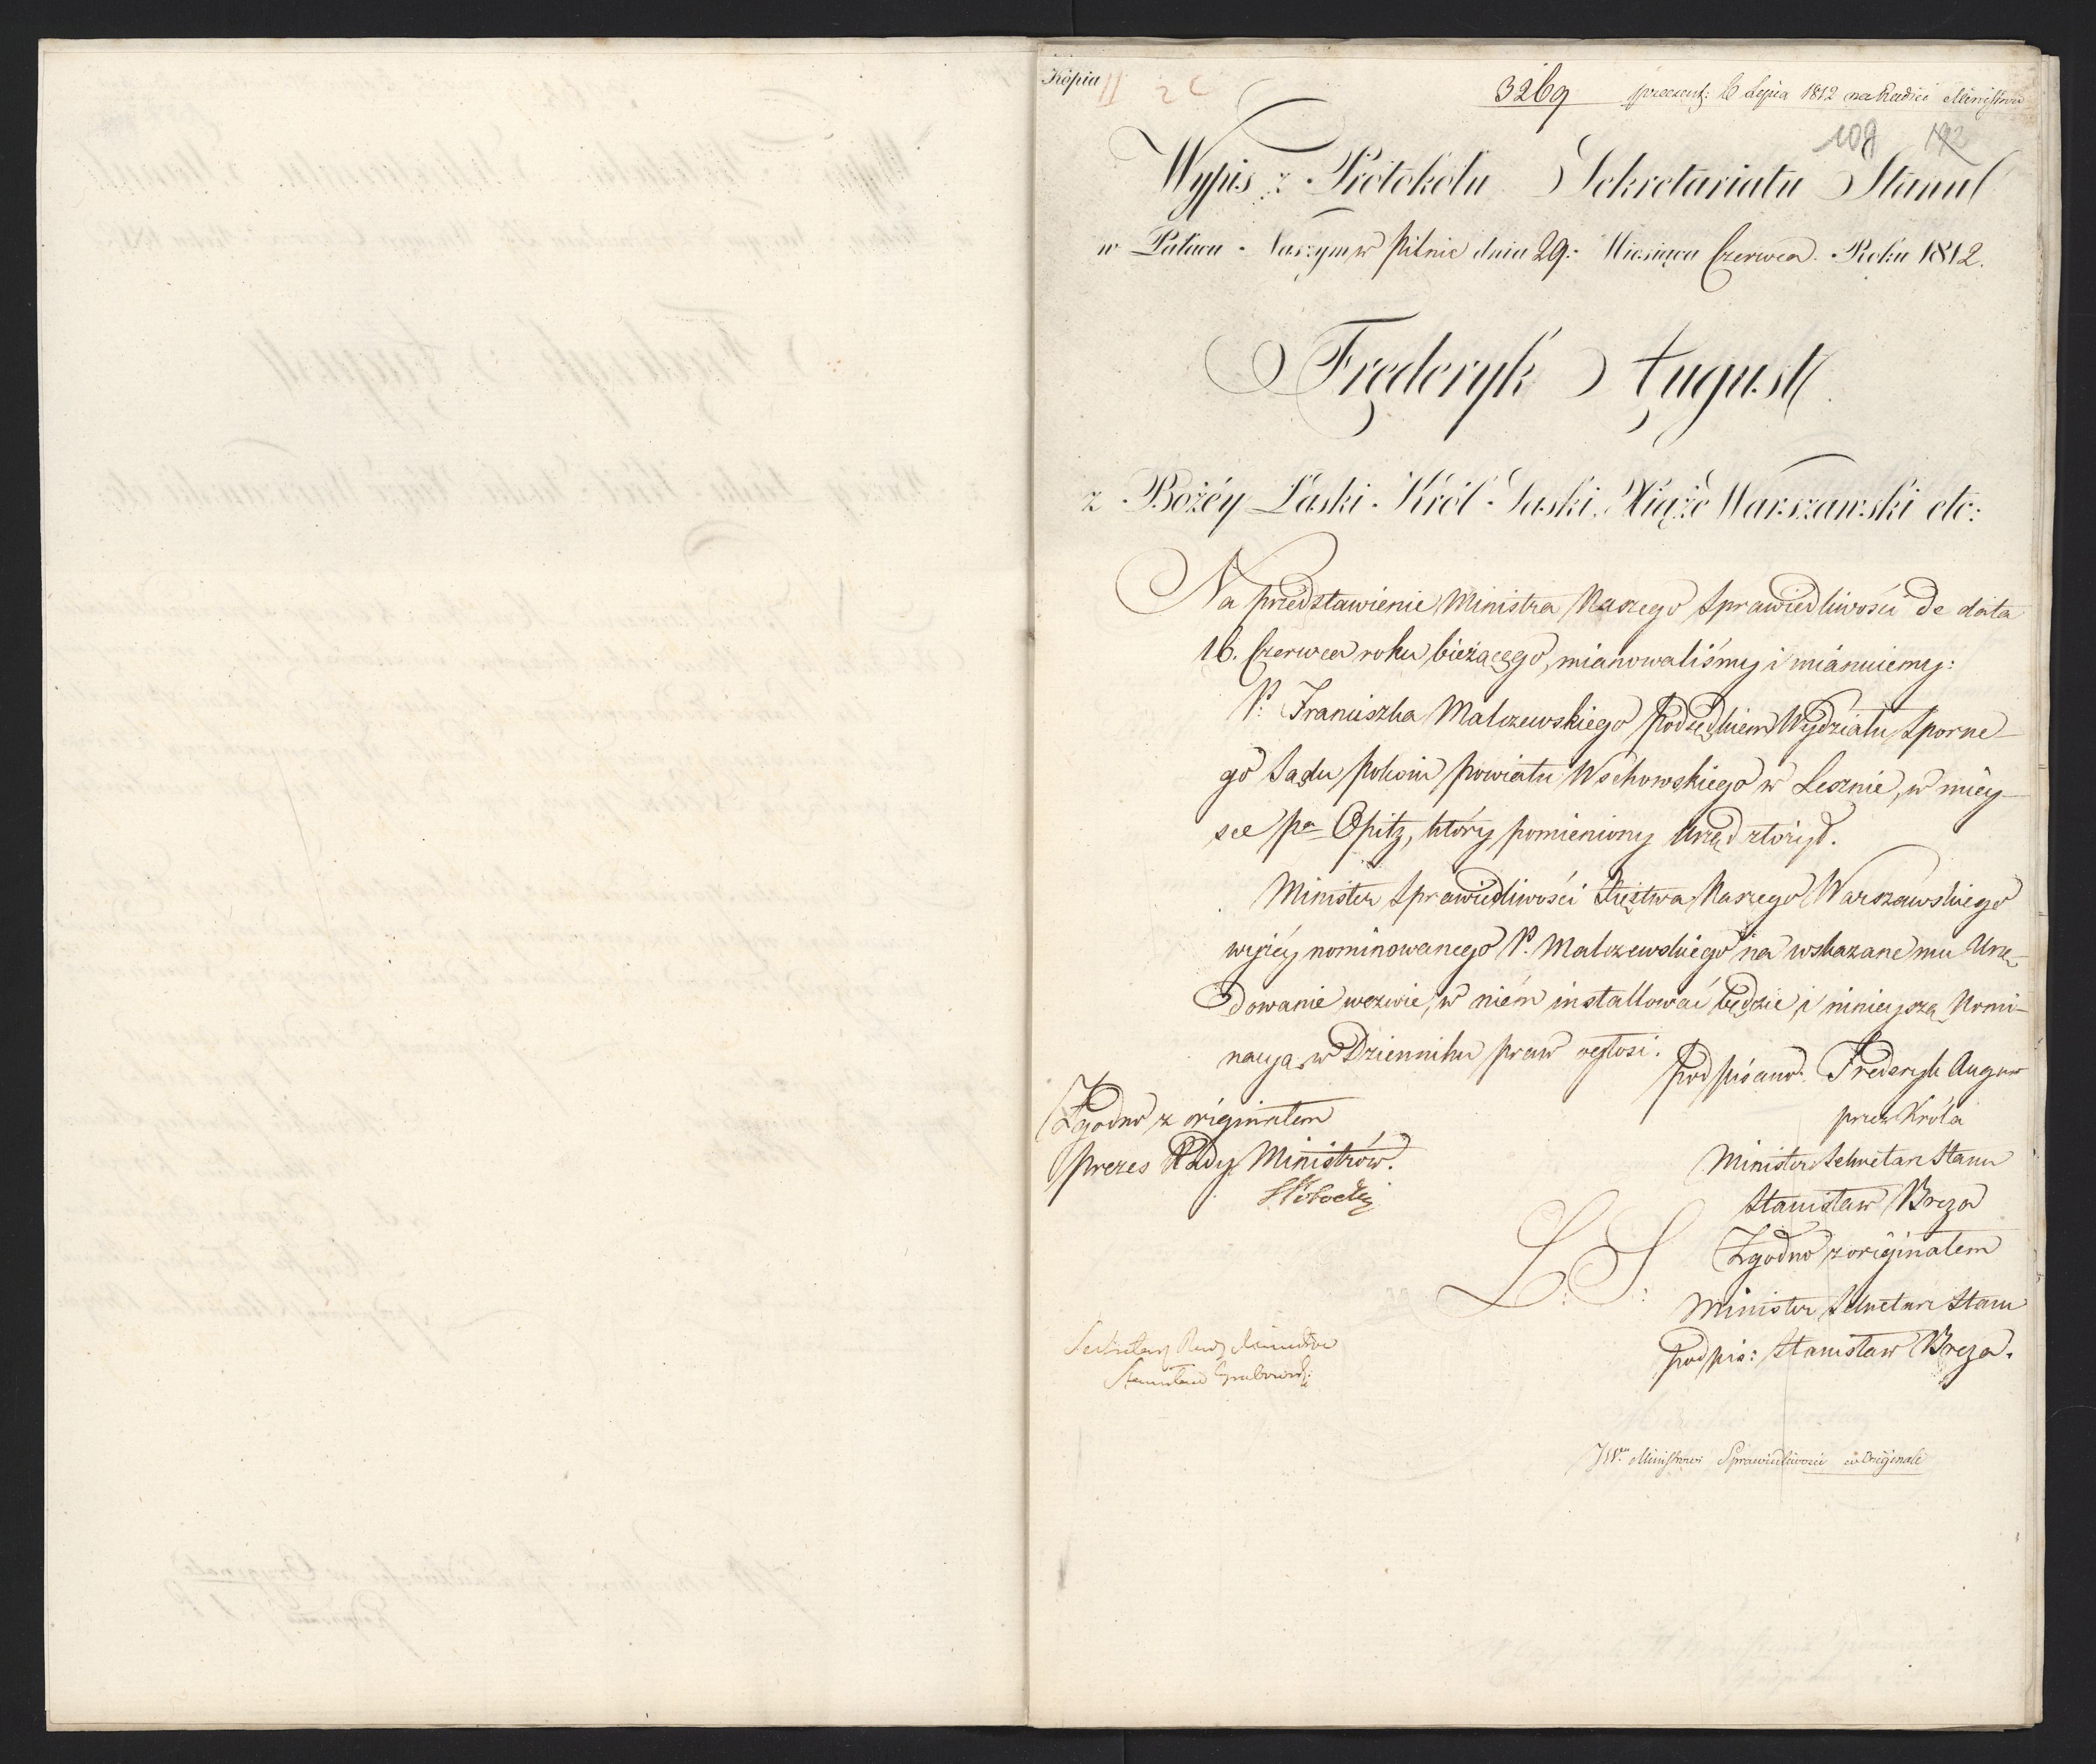 Kopia
3269 praezent: 6 Lipca 1812 na Radzie Ministrów
108
Wypis z Protokołu Sekretariatu Stanu
w Pałacu Naszym w Pilnic dnia 29. Miesiąca Czerwca Roku 1812.
Fryderyk August
z Bożéy Łaski Król Saski Xiąże Warszawski etc:
Na przedstawienie Ministra Naszego Sprawiedliwości de data
16. Czerwca roku bieżącego, mianowaliśmy i mianuiemy:
P. Franciszka Malczewskiego Podsędkiem Wydziału Sporne-
go Sądu pokoiu powiatu Wschowskiego w Lesznie, w miey-
sce Pa Opitz, który pomieniony Urząd złożył.
Minister Sprawiedliwości Xięstwa Naszego Warszawskiego
wyżéy nominowanego P. Malczewskiego na wskazane mu Urzę-
dowanie wezwie, w niém installować będzie i ninieyszą Nomi-
nacyą w Dzienniku praw ogłosi.
podpisano: Frederyk August
przez Króla
Minister Sekretarz Stanu
Stanisław Breza
Zgodno z originałem
Prezes Rady Ministrów.
SPotocki
L: S:
Zgodno z originałem
Minister Sekretarz Stanu
podpis: Stanisław Breza.
Sekretarz Rady Ministrów
Stanisław Grabowski
JWu Ministrowi Sprawiedliwości w Originale